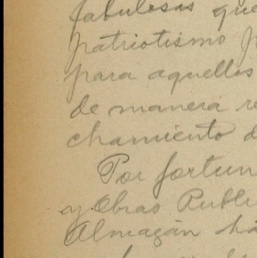 fabulosas que
patriotismo p
para aquellos
de manera re
chamiento d
Por fortun
y Obras Publi
Almazán ha